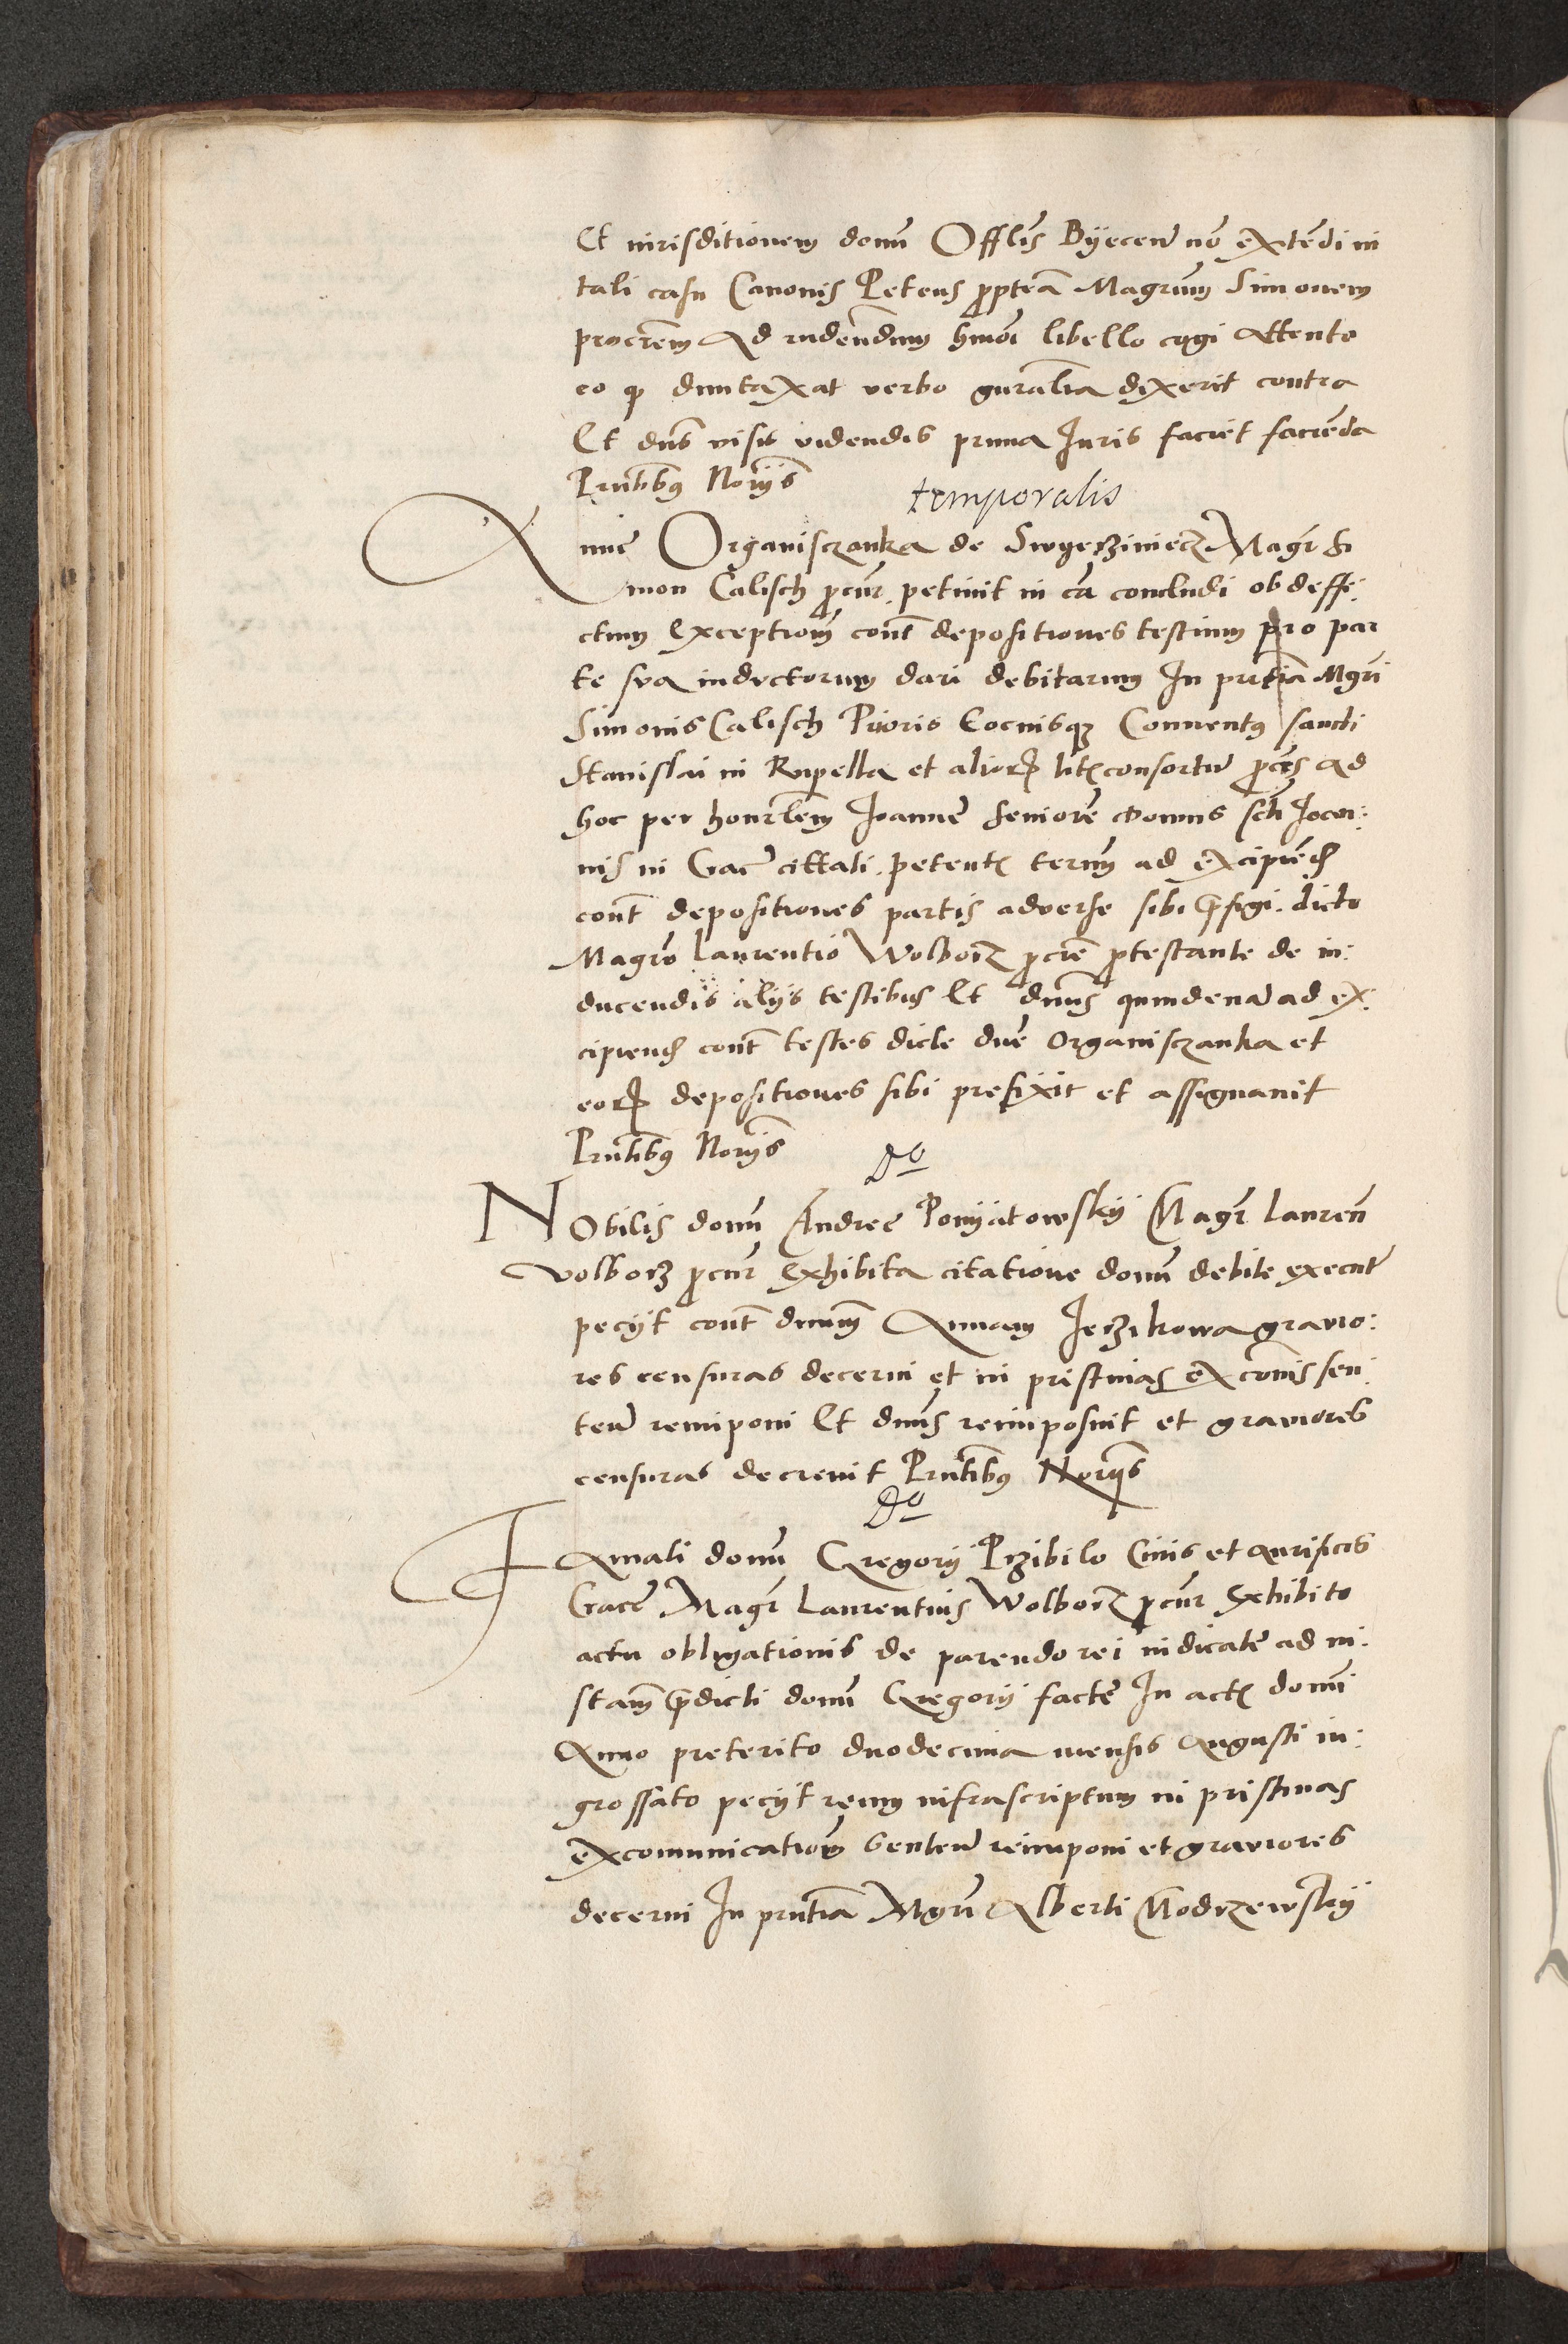 Et iurisditionem domini Offlis Byecen no extedi in
tali casu Canonis Petens propterea Magrum Simonem
procrem ad rndendum hmoi libello cogi attento
eo q duntaxat verbo gnralia dixerit contra
Et dns visis videndis prima Iuris faciet facienda
Pntibus Noriis
temporalis
Anne Organisczanka de Swyerziniecz Magr Si
mon Calisch procur petiuit in ca concludi ob deffe:
ctum exceptiom cont depositiones testium pro par
te sua inductorum dari debitarum In pntia Mgri
Simonis Calisch Prioris tocuisq Conuentus sancti
Stanislai in Rupella et alior litis consortu procris ad
hoc per honrlem Joanne seniore domus scti Joan:
nis in Crac cittati petentis termu ad excipiend
cont depositiones partis aduerse sibi prefigi dicto
Magro Laurentio Wolborz procre protestante de in:
ducendis alijs testibus Et dnus quindena ad ex:
cipiend cont testes dicte dne Organisczanka et
eor depositiones sibi prefixit et assignauit
Pntibus Noriis
Do
Nobilis domini Andree Ponyatowsky Magr Lauren
Volborz procur exhibita citatione domini debite execut
pecijt cont dnam Annam Jerzikowa grauio:
res censuras decerni et in pristinas excois sen:
ten reimponi Et dnus reimposuit et grauiores
censuras decreuit Pntibus Noriis
Do
Famati domini Gregorij Przibilo Ciuis et aurificis
Crac Magr Laurentius Wolborz procur exhibito
actu obligationis de parendo rei iudicate ad in:
stam predicti domini Gregorij facte In actis domini
Anno preterito duodecima mensis Augusti in:
grossato pecijt reum infrascriptum in pristinas
excomunication senten reimponi et grauiores
decerni In pntia Mgri Alberti Modrzewsky